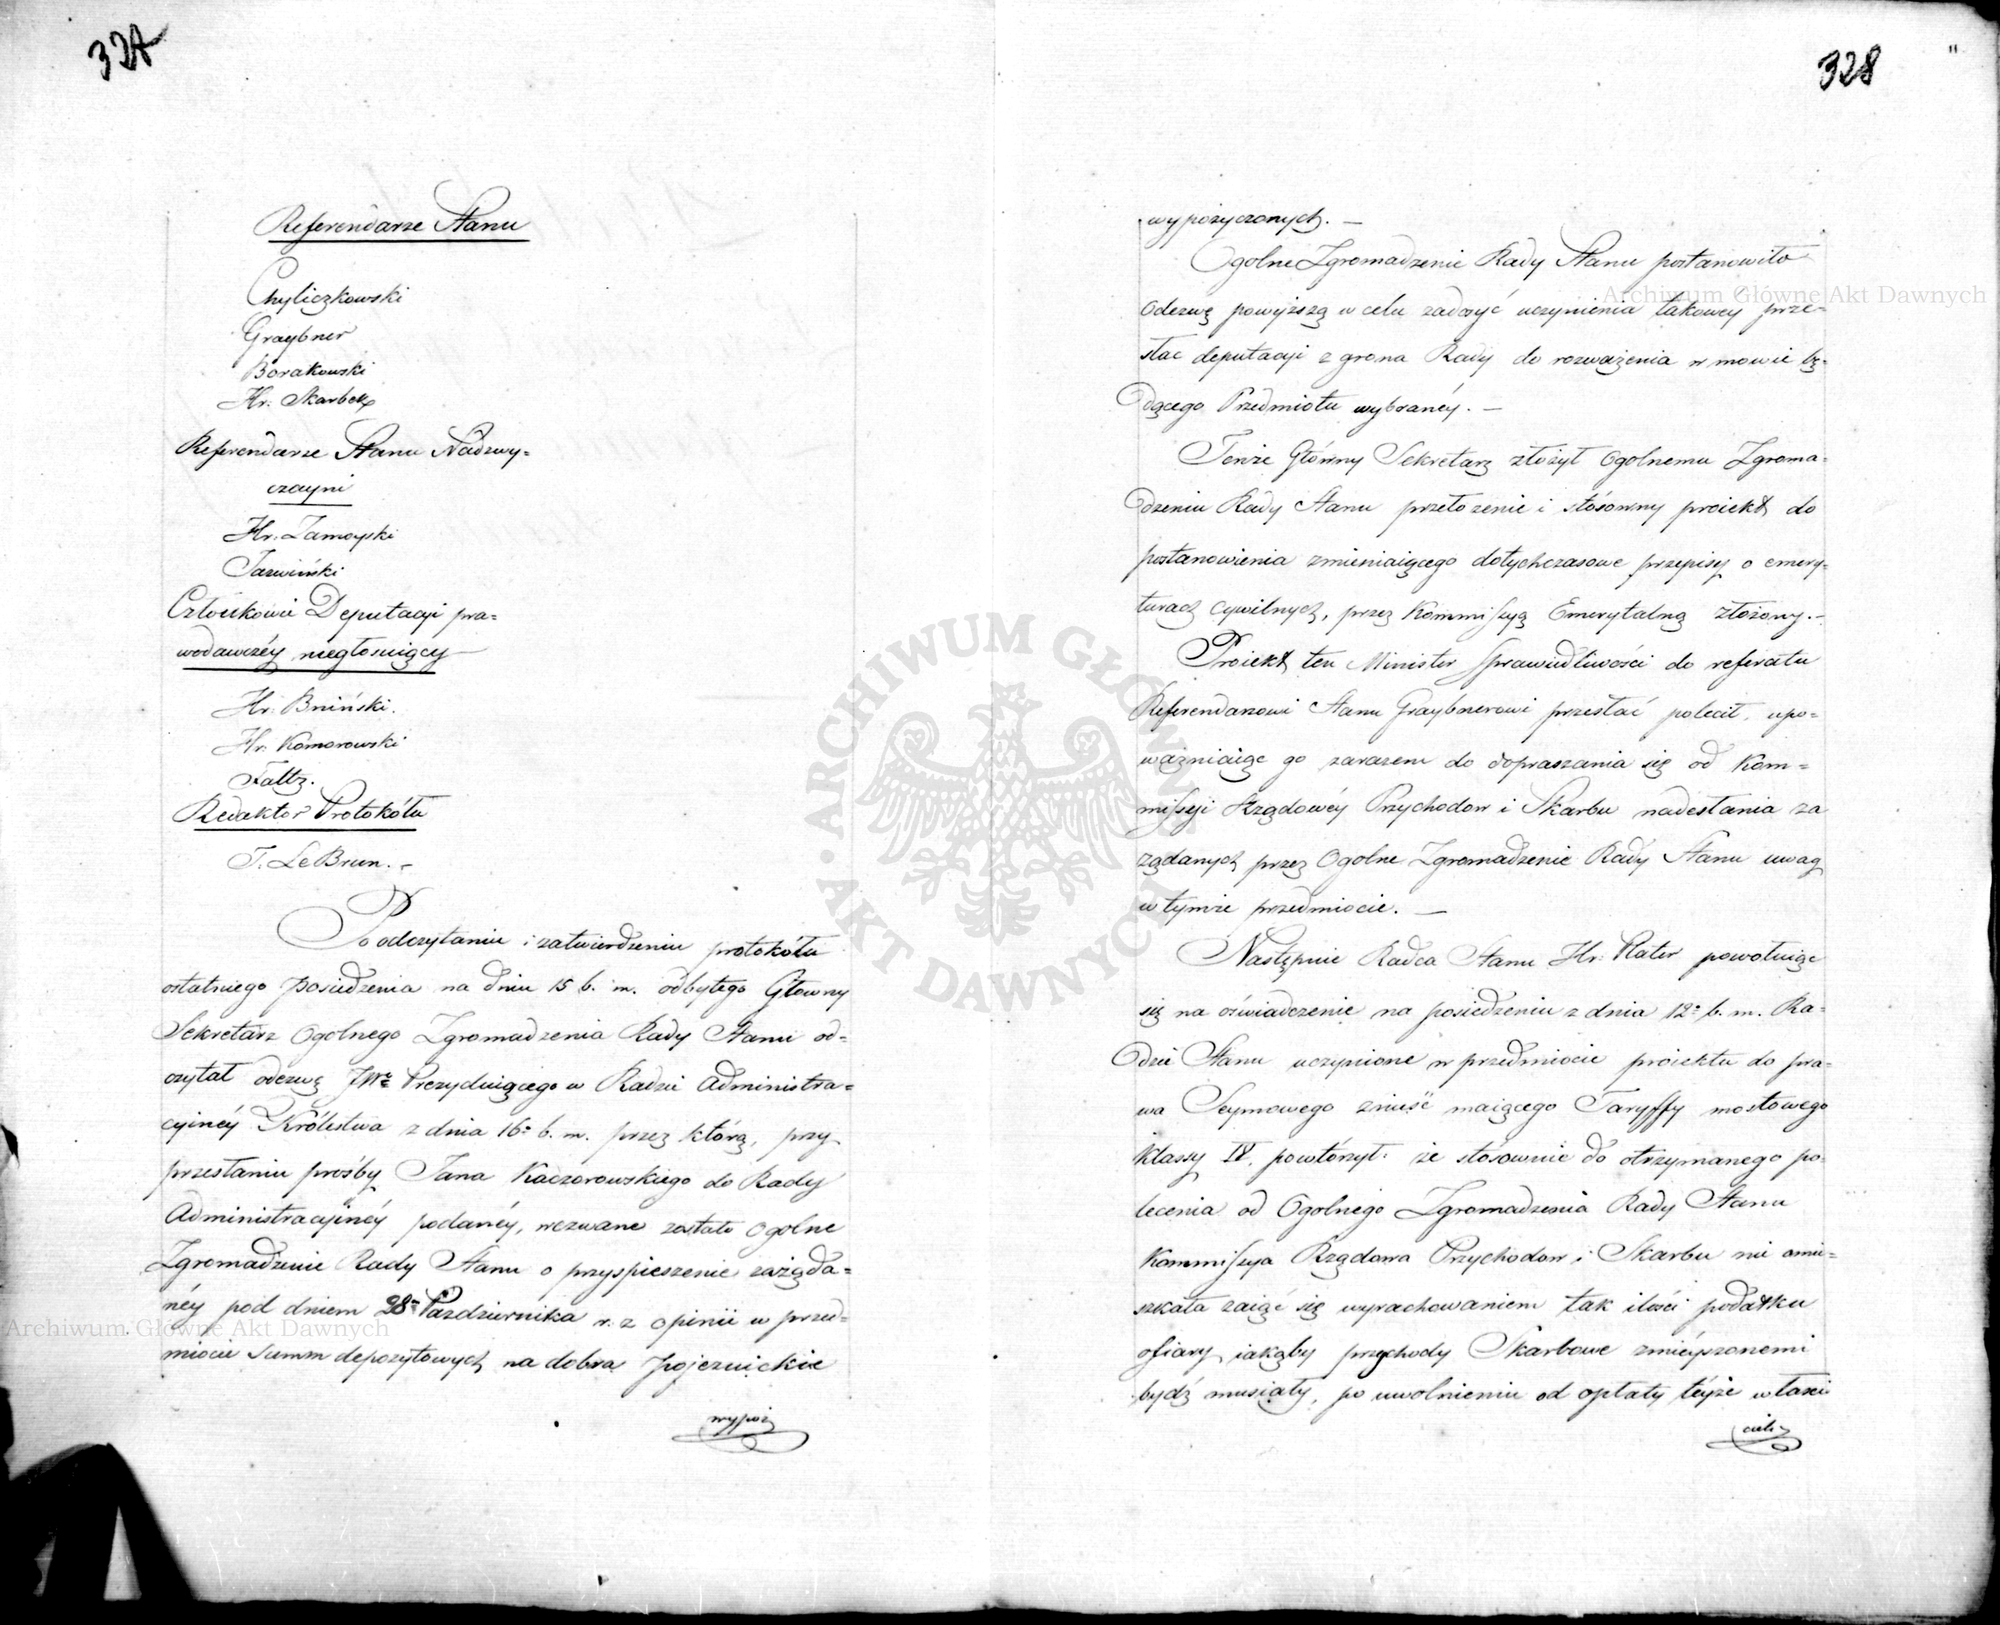 327
Referendarze Stanu
Chyliczkowski
Graybner
Borakowski
Hr. Skarbek
Referendarze Stanu Nadzwy=
czayni
Hr. Zamoyski
Tarwiński
Członkowie Deputacyi pra=
wodawczéy niegłosuiący
Hr. Bniński.
Hr. Komorowski
Faltz.
Redaktor Protokółu
T. Le Brun. –
Po odczytaniu i zatwierdzeniu protokółu
ostatniego posiedzenia na dniu 15 b. m. odbytego Głowny
Sekretarz Ogolnego Zgromadzenia Rady Stanu od=
czytał odezwę JWo Prezyduiącego w Radzie Administra=
cyinéy Królestwa z dnia 16o b. m. przez którą, przy
przesłaniu prośby Jana Kaczorowskiego do Rady
Administracyinéy podanéy, wezwane zostało Ogolne
Zgromadzenie Rady Stanu o przyspieszenie zażąda=
néy pod dniem 28m Pazdziernika r. z opinii w przed=
miocie summ depozytowych na dobra Jpojeznickie
wypoż
328
wypożyczonych. —
Ogolne Zgromadzenie Rady Stanu postanowiło
Odezwę powyższą w celu zadosyć uczynienia takowey prze=
słac deputacyi z grona Rady do rozważenia w mowie bę=
dącego Przedmiotu wybranéy. —
Tenże Główny Sekretarz złożył Ogolnemu Zgroma=
dzeniu Rady Stanu przełozenie i stósowny proiekt do
postanowienia zmieniaiącego dotychczasowe przepisy o emery=
turach cywilnych, przez Kommissyą Emerytalną złożony. –
Proiekt ten Minister Sprawiedliwości do referatu
Referendarzowi Stanu Graybnerowi przesłać polecił, upo=
ważniaiąc go zarazem do dopraszania się od Kom=
missyi Rządowéy Przychodow i Skarbu nadesłania za
żądanych przez Ogolne Zgromadzenie Rady Stanu uwag
w tymże przedmiocie. —
Następnie Radca Stanu Hr. Plater powołuiąc
się na oświadczenie na posiedzeniu z dnia 12o b. m. Ra=
dzie Stanu uczynione w przedmiocie proiektu do pra=
wa Seymowego znieść maiącego Taryffy mostowego
Klassy IV, powtórzył że stósownie do otrzymanego po=
lecenia od Ogolnégo Zgromadzenia Rady Stanu
Kommissya Rządowa Przychodow i Skarbu nie omie=
szkała zaiąć się wyrachowaniem tak ilości podatku
ofiary iakąby przychody Skarbowe zmnieyszonemi
bydź musiały, po uwolnieniu od opłaty teyże właści
cieli
Archiwum Główne Akt Dawnych
Archiwum Główne Akt Dawnych
ARCHIWUM GŁÓWNE · AKT DAWNYCH ·